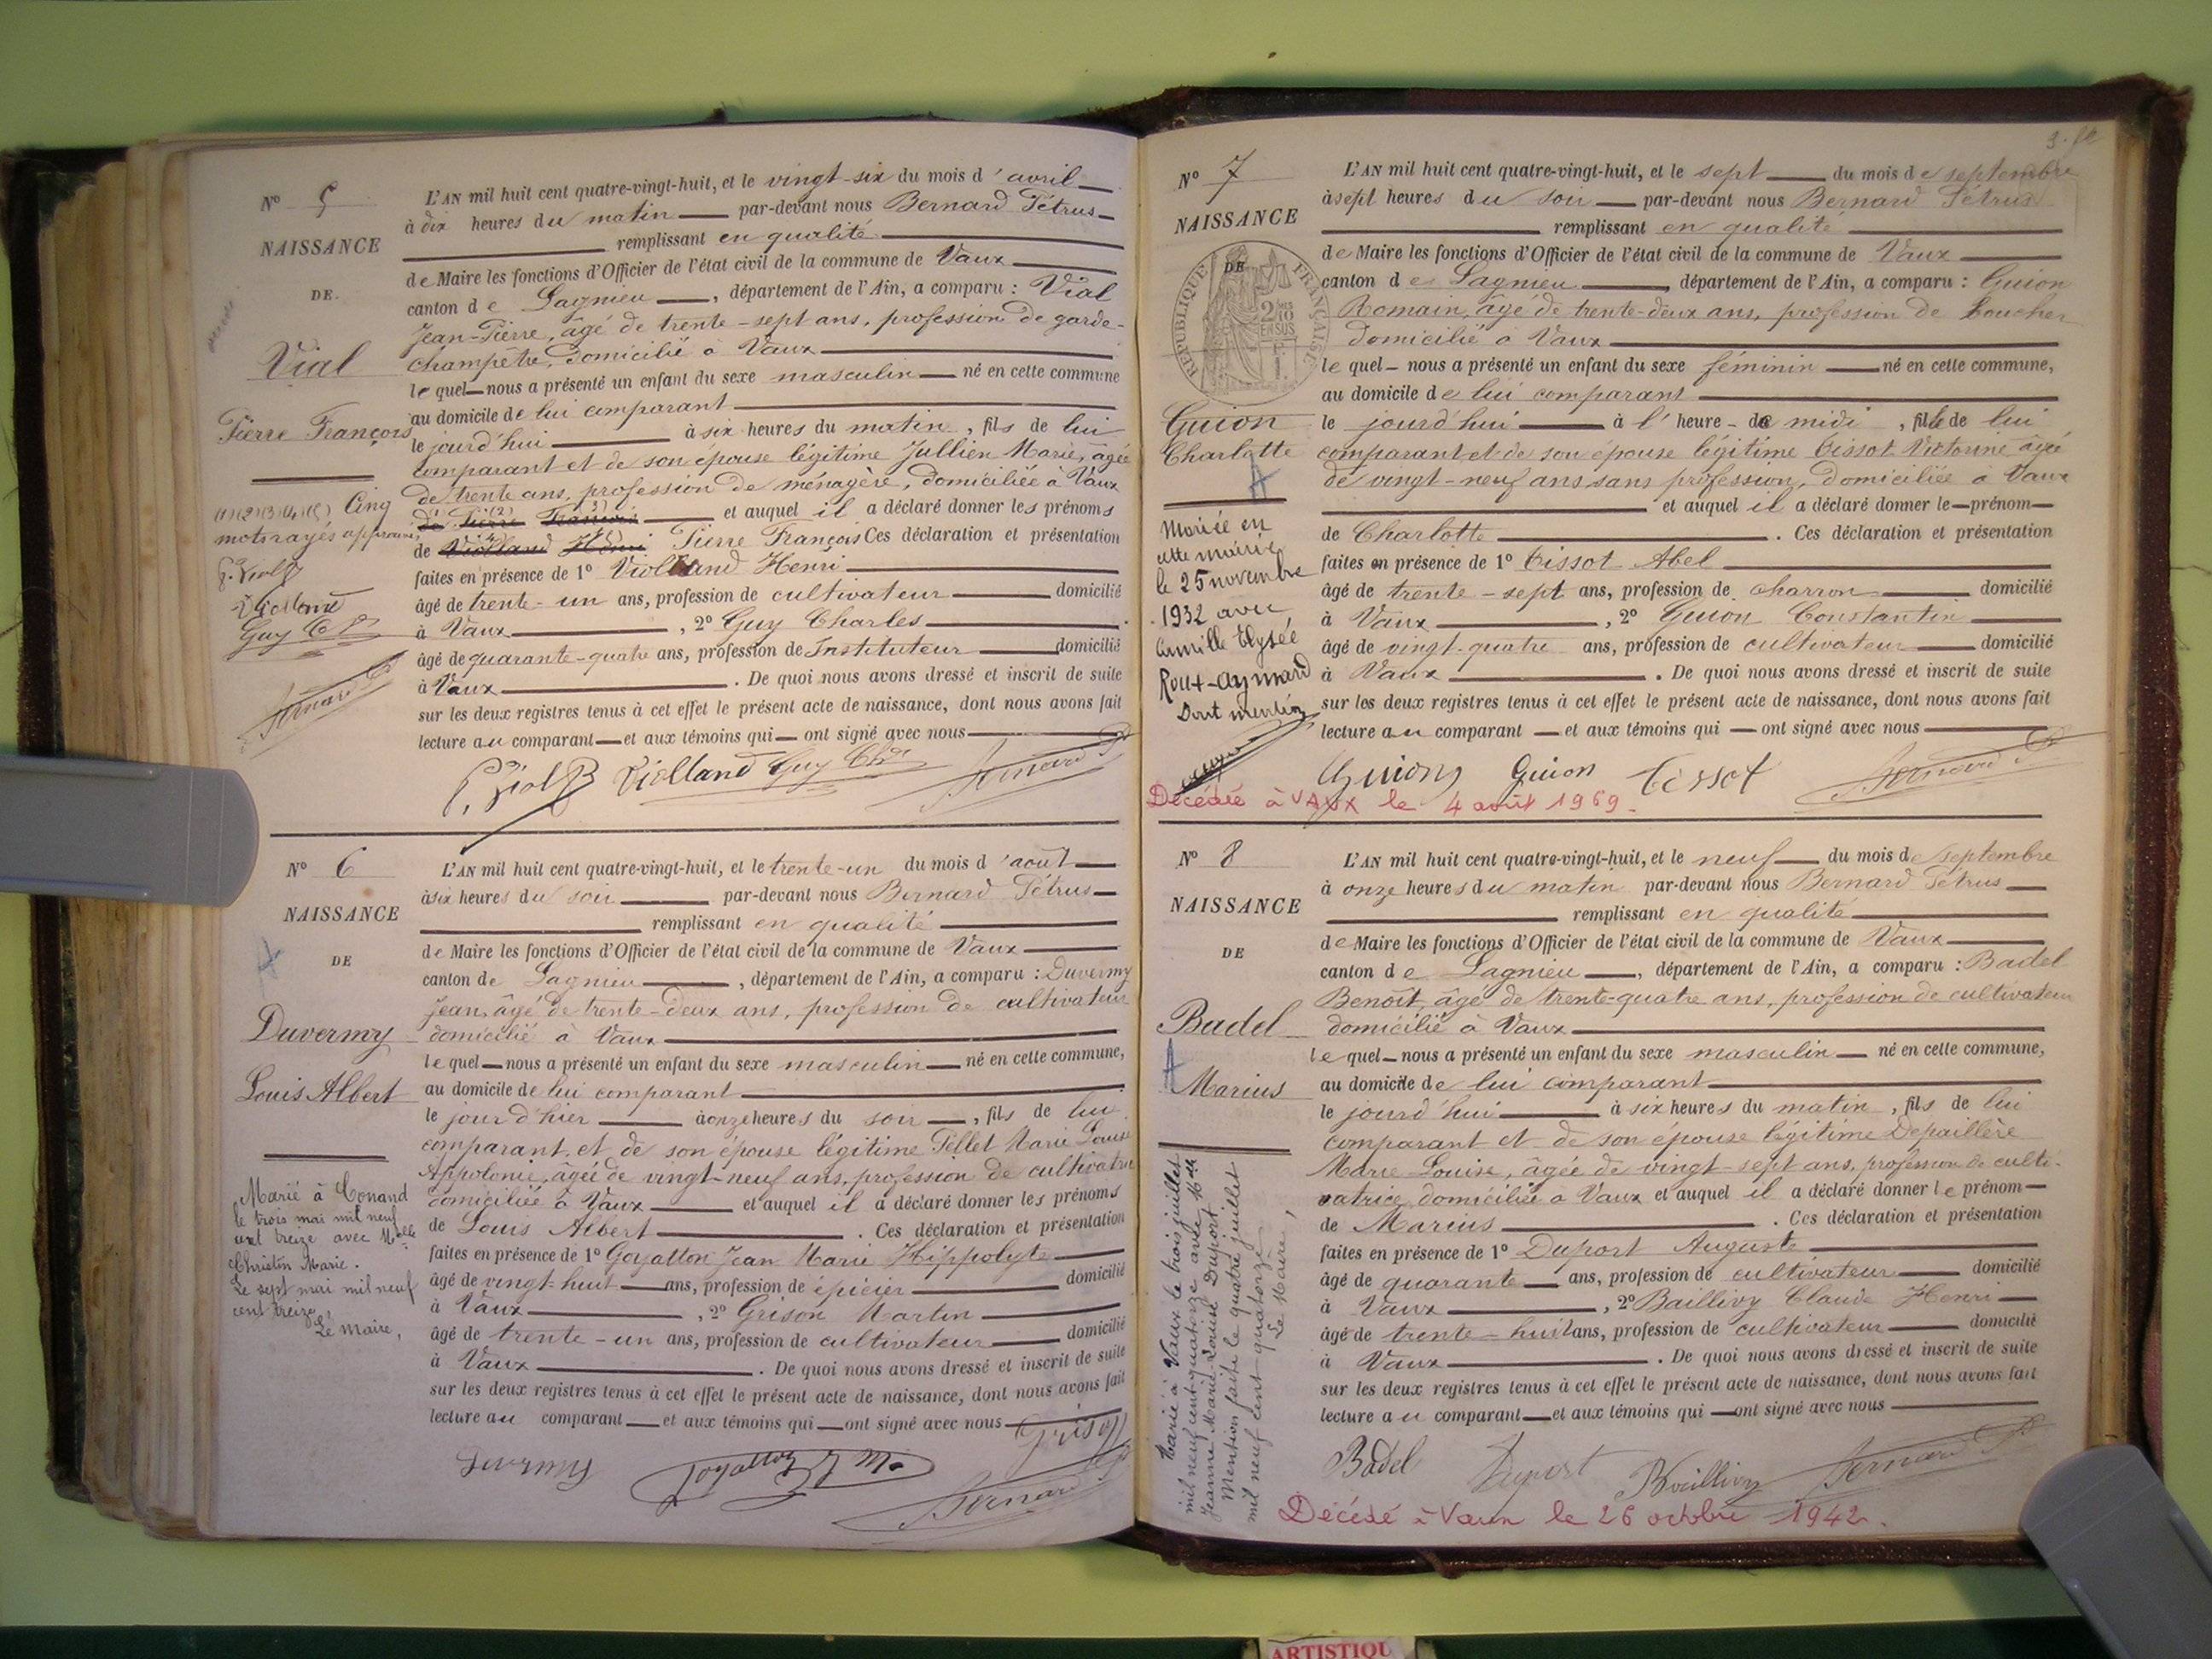 N° 5
NAISSANCE
DE
Vial
Pierre François
(1)(2)(3)(4)(5) Cinq
mots rayés approuvés
Violland
Guy Ch
Bernard P
L'AN mil huit cent quatre-vingt-huit, et le vingt-six du mois d'avril
à dix heures du matin par-devant nous Bernard Pétrus
remplissant en qualité
de Maire les fonctions d'Officier de l'état civil de la commune de Vaux
canton de Lagnieu, département de l'Ain, a comparu : Vial
Jean-Pierre, âgé de trente-sept ans, profession de garde-
champêtre, domicilié à Vaux
lequel nous a présenté un enfant du sexe masculin né en cette commune
au domicile de lui comparant
le jourd'hui à six heures du matin, fils de lui
comparant et de son épouse légitime Jullien Marie, âgée
de trente ans, profession de ménagère, domiciliée à Vaux
de Pierre François et auquel il a déclaré donner les prénoms
de Violland Henri Pierre François Ces déclaration et présentation
faites en présence de 1° Violland Henri
âgé de trente-un ans, profession de cultivateur domicilié
à Vaux, 2° Guy Charles
âgé de quarante-quatre ans, profession de Instituteur domicilié
à Vaux. De quoi nous avons dressé et inscrit de suite
sur les deux registres tenus à cet effet le présent acte de naissance, dont nous avons fait
lecture au comparant et aux témoins qui ont signé avec nous
Violland Guy Ch Bernard P
N° 6
NAISSANCE
DE
Duvermy
Louis Albert
Marié à Conand
le trois mai mil neuf
cent treize avec Melle
Christin Marie.
Le sept mai mil neuf
cent treize,
Le Maire,
L'AN mil huit cent quatre-vingt-huit, et le trente-un du mois d'août
à six heures du soir par-devant nous Bernard Pétrus
remplissant en qualité
de Maire les fonctions d'Officier de l'état civil de la commune de Vaux
canton de Lagnieu, département de l'Ain, a comparu : Duvermy
Jean, âgé de trente-deux ans, profession de cultivateur
domicilié à Vaux
lequel nous a présenté un enfant du sexe masculin né en cette commune,
au domicile de lui comparant
le jourd'hier à onze heures du soir, fils de lui
comparant et de son épouse légitime Pellet Marie Louise
Appolonie, âgée de vingt-neuf ans, profession de cultivatrice
domiciliée à Vaux et auquel il a déclaré donner les prénoms
de Louis Albert. Ces déclaration et présentation
faites en présence de 1° Goyatton Jean Marie Hippolyte
âgé de vingt-huit ans, profession de épicier domicilié
à Vaux, 2° Grison Martin
âgé de trente-un ans, profession de cultivateur domicilié
à Vaux. De quoi nous avons dressé et inscrit de suite
sur les deux registres tenus à cet effet le présent acte de naissance, dont nous avons fait
lecture au comparant et aux témoins qui ont signé avec nous
Grison
Duvermy Goyatton J M Bernard P
N° 7
NAISSANCE
DE
RÉPUBLIQUE FRANÇAISE
2 10 EN SUS
Guion
Charlotte
Mariée en
cette mairie
le 25 novembre
1932 avec
Camille Elysée
Roux-Aymard
Dont mention
L'AN mil huit cent quatre-vingt-huit, et le sept du mois de septembre
à sept heures du soir par-devant nous Bernard Pétrus
remplissant en qualité
de Maire les fonctions d'Officier de l'état civil de la commune de Vaux
canton de Lagnieu, département de l'Ain, a comparu : Guion
Romain, âgé de trente-deux ans, profession de boucher
domicilié à Vaux
lequel nous a présenté un enfant du sexe féminin né en cette commune,
au domicile de lui comparant
le jourd'hui à l'heure de midi, fille de lui
comparant et de son épouse légitime Tissot Victorine âgée
de vingt-neuf ans sans profession, domiciliée à Vaux
et auquel il a déclaré donner le prénom
de Charlotte. Ces déclaration et présentation
faites en présence de 1° Tissot Abel
âgé de trente-sept ans, profession de charron domicilié
à Vaux, 2° Guion Constantin
âgé de vingt-quatre ans, profession de cultivateur domicilié
à Vaux. De quoi nous avons dressé et inscrit de suite
sur les deux registres tenus à cet effet le présent acte de naissance, dont nous avons fait
lecture au comparant et aux témoins qui ont signé avec nous
Guion Guion Tissot Bernard P
Décédée à VAUX le 4 août 1969.
N° 8
NAISSANCE
DE
Badel
Marius
Marié à Vaux le trois juillet
mil neuf cent quatorze avec Melle
Jeanne Marie Louise Duport
Mention faite le quatre juillet
mil neuf cent quatorze
Le Maire,
L'AN mil huit cent quatre-vingt-huit, et le neuf du mois de septembre
à onze heures du matin par-devant nous Bernard Pétrus
remplissant en qualité
de Maire les fonctions d'Officier de l'état civil de la commune de Vaux
canton de Lagnieu, département de l'Ain, a comparu : Badel
Benoît, âgé de trente-quatre ans, profession de cultivateur
domicilié à Vaux
lequel nous a présenté un enfant du sexe masculin né en cette commune,
au domicile de lui comparant
le jourd'hui à six heures du matin, fils de lui
comparant et de son épouse légitime Depaillère
Marie Louise, âgée de vingt-sept ans, profession de culti-
vatrice, domiciliée à Vaux et auquel il a déclaré donner le prénom
de Marius. Ces déclaration et présentation
faites en présence de 1° Duport Auguste
âgé de quarante ans, profession de cultivateur domicilié
à Vaux, 2° Baillivy Claude Henri
âgé de trente-huit ans, profession de cultivateur domicilié
à Vaux. De quoi nous avons dressé et inscrit de suite
sur les deux registres tenus à cet effet le présent acte de naissance, dont nous avons fait
lecture au comparant et aux témoins qui ont signé avec nous
Badel Duport Baillivy Bernard P
Décédé à Vaux le 26 octobre 1942.
ARTISTIQU